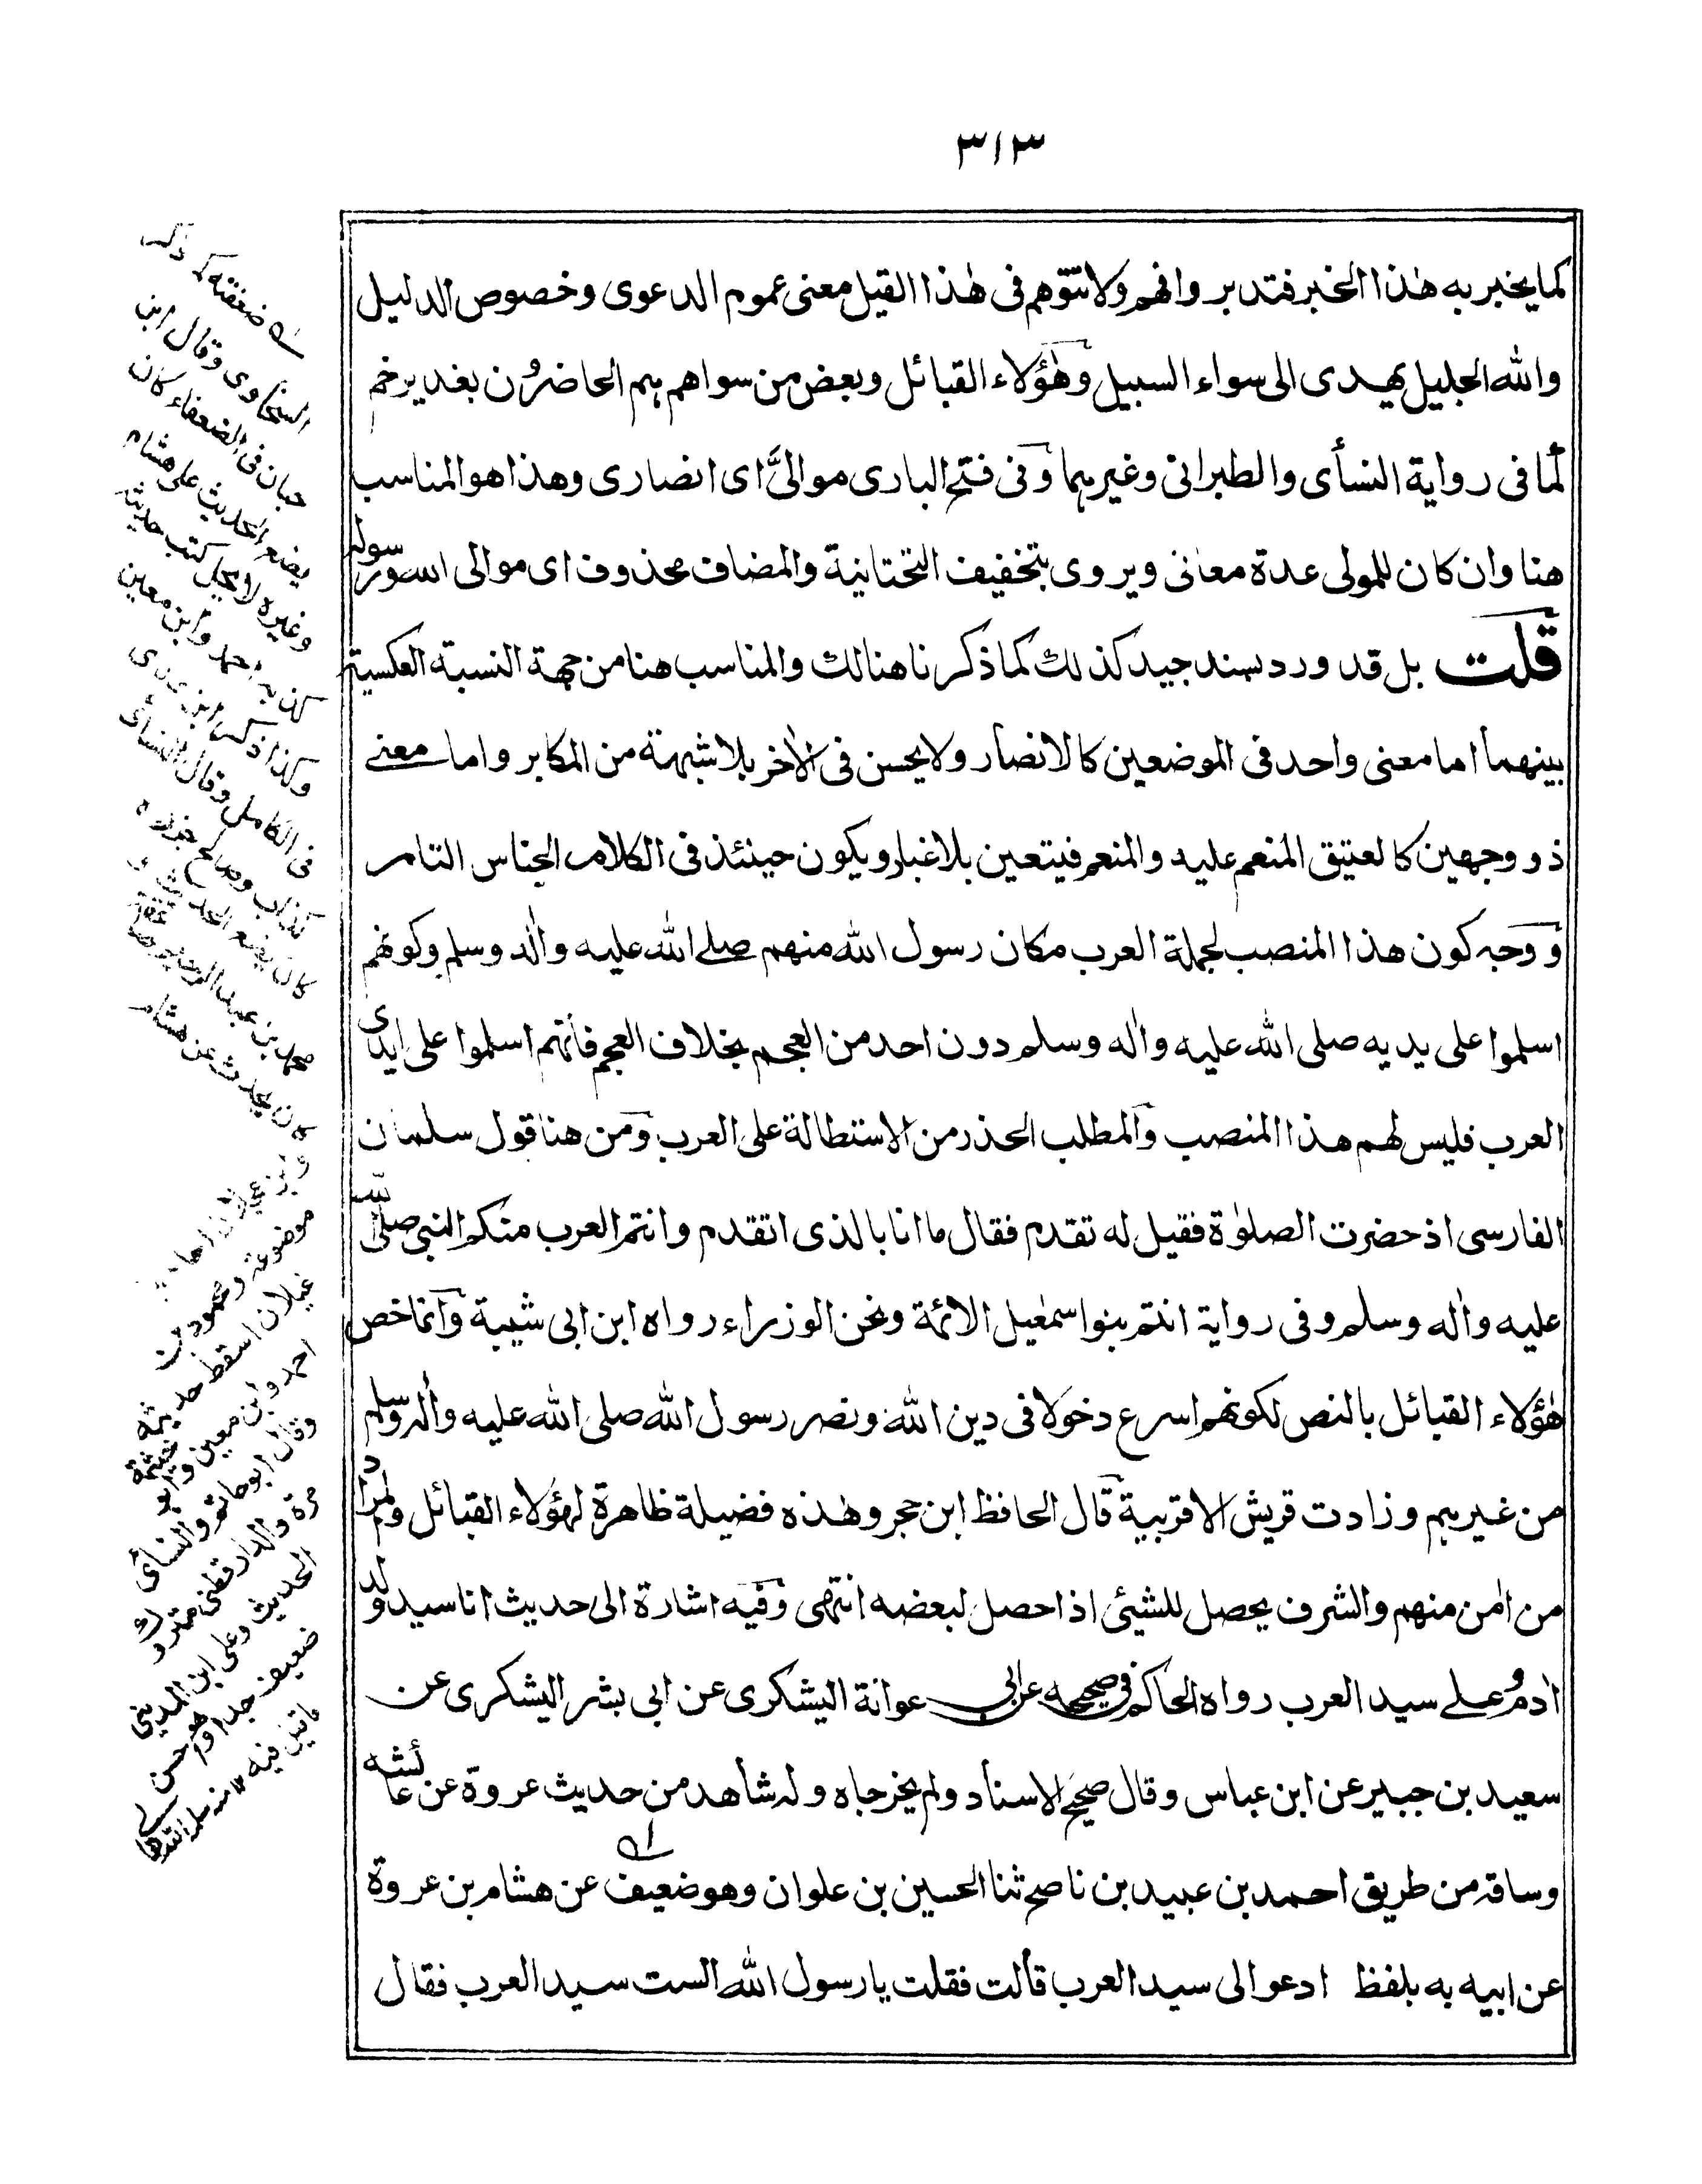 ٣١٣
كما يخبر به هٰذا الخبر فتدبر وافهم ولا تتوهم فى هٰذا القيل معنى عموم الدعوى وخصوص الدليل
والله الجليل يهدى الى سواء السبيل وهٰؤلاء القبائل وبعض من سواهم هم الحاضرون بغدير خم
لما فى رواية النسأى والطبرانى وغيرهما وفى فتح البارى موالىَّ اى انصارى وهذا هو المناسب
هنا وان كان للمولى عدة معانى ويروى بتخفيف التحتانية والمضاف محذوف اى موالى الله ورسوله
قلت بل قد ورد بسند جيد كذلك كما ذكرنا هنالك والمناسب هنا من جهة النسبة العكسية
بينهما اما معنى واحد فى الموضعين كالانصار ولا يحسن فى الاٰخر بلا شبهة من المكابر واما معنے
ذو وجهين كالعتيق المنعم عليه والمنعم فيتعين بلا غبار ويكون حينئذ فى الكلام الجناس التام
ووجه كون هذا المنصب لجملة العرب مكان رسول الله منهم صلے الله عليه واٰله وسلم وكونهم
اسلموا على يديه صلى الله عليه واٰله وسلم دون احد من العجم بخلاف العجم فأنهم اسلموا على ايدى
العرب فليس لهم هذا المنصب والمطلب الحذر من الاستطالة على العرب ومن هنا قول سلمان
الفارسى اذ حضرت الصلوٰة فقيل له تقدم فقال ما انا بالذى اتقدم وانتم العرب منكم النبى صلى الله
عليه واٰله وسلم وفى رواية انتم بنو اسمٰعيل الائمة ونحن الوزراء رواه ابن ابى شيبة وانما خص
هٰؤلاء القبائل بالنص لكونهم اسرع دخولا فى دين الله ونصر رسول الله صلى الله عليه واٰله وسلم
من غيرهم وزادت قريش الاقربية قال الحافظ ابن حجر وهٰذه فضيلة ظاهرة لهؤلاء القبائل والمراد
من اٰمن منهم والشرف يحصل للشيئ اذا حصل لبعضه انتهى وفيه اشارة الى حديث انا سيد ولد
اٰدم وعلے سيد العرب رواه الحاكم فى صحيحه عن ابى عوانة اليشكرى عن ابى بشر اليشكرى عن
سعيد بن جبير عن ابن عباس وقال صحيح الاسناد ولم يخرجاه وله شاهد من حديث عروة عن عائشه
وساقه من طريق احمد بن عبيد بن ناصح ثنا الحسين بن علوان وهو ضعيف عن هشام بن عروة
عن ابيه به بلفظ ادعوا لى سيد العرب قالت فقلت يا رسول الله الست سيد العرب فقال
ضعفته كـ ذكـ
السخاوى وقال ابن
حبان فى الضعفاء كان
يضع الحديث على هشام
وغيره لا يحل كتب حديثه
كذبه احمد وابن معين
وكذا ذكر ابن عدى
فى الكامل وقال النسأى
كذاب وصالح جزره
كان يضع الحديث و
محمد بن عبد الرحيم صاعقة
كان يحدث عن هشام
وابن عجلان
موضوعة ومحمود بن
غيلان اسقط حديثه
احمد وابن معين وابو خيثمة
وقال ابو حاتم والنسأى
مرة والدارقطنى متروك
الحديث وعلى ابن المدينى
ضعيف جدا وهو احسن
ما قيل فيه ١٢ منه سلمه الله